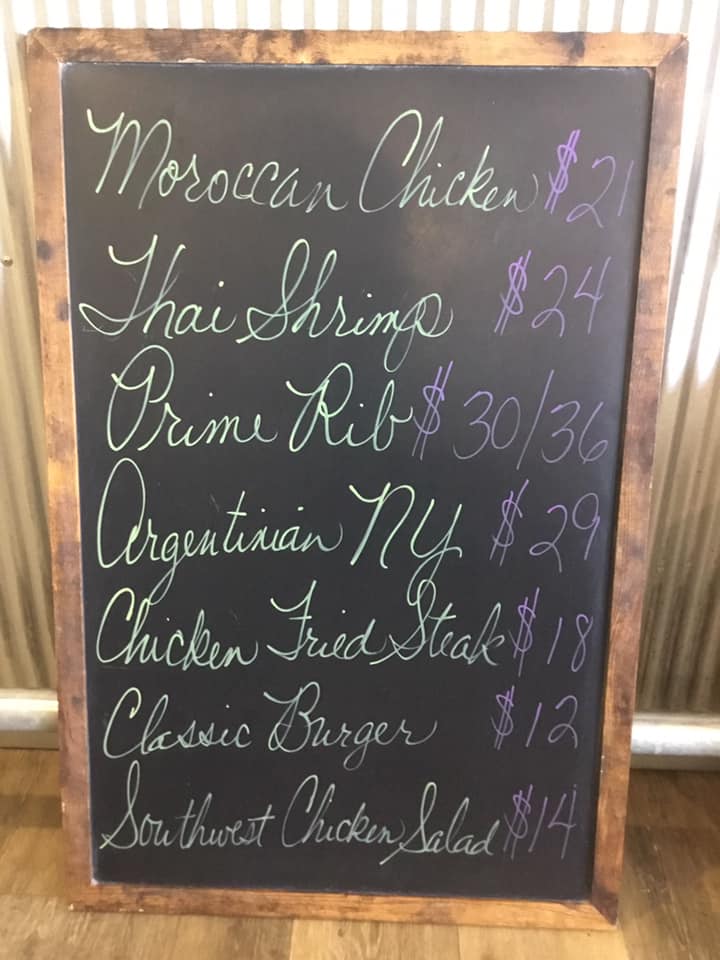 Moroccan Chicken $21
Thai Shrimp $24
Prime Rib $30/36
Argentinian NY $29
Chicken Fried Steak $18
Classic Burger $12
Southwest Chicken Salad $14